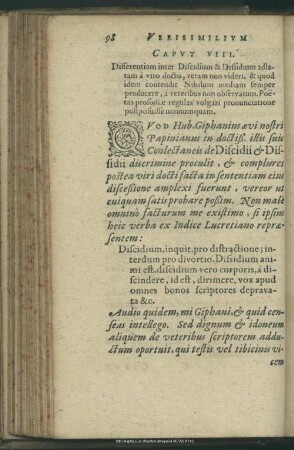 98 VERISIMILIVM
CAPVT VIII.
Differentiam inter Discidium & Dissidium adla-
tam à viro docto, veram non videri, & quod
idem contendit Nihilum mediam semper
producere, à veteribus non observatum. Poë-
tas prosodiæ regulas vulgari pronunciatione
posthabuisse nonnumquam.
QVOD Hub. Giphanius ævi nostri
Papinianus in doctiss. illis suis
Conlectaneis de Discidii & Dis-
sidii discrimine prodidit, & complures
postea viri docti facta in sententiam eius
discessione amplexi fuerunt, vereor ut
cuiquam satis probare possim. Non malè
omnino facturum me existimo, si ipsius
heic verba ex Indice Lucretiano repræ-
sentem:
Discidium, inquit, pro distractione; in-
terdum pro divortio. Dissidium ani-
mi est, discidium vero corporis, à di-
scindere, id est, dirimere, vox apud
omnes bonos scriptores deprava-
ta &c.
Audio quidem, mi Giphani, & quid cen-
seas intellego. Sed dignum & idoneum
aliquem de veteribus scriptorem addu-
ctum oportuit, qui testis vel tibicinis vi-
cem